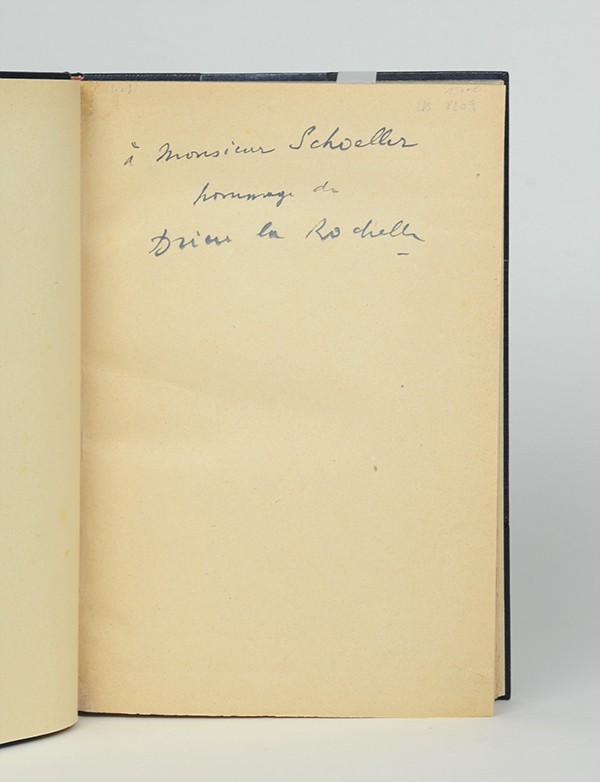 à Monsieur Schoeller
hommage de
Drieu la Rochelle